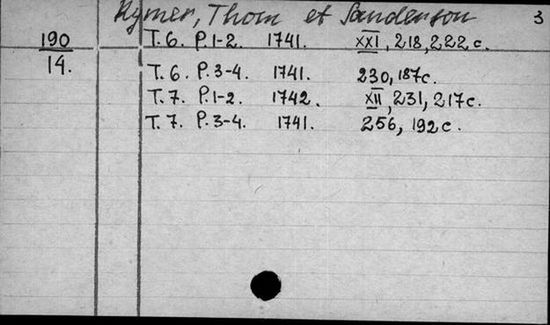 Rymer, Thom et Sanderson 3
190 T. 6. P. 1-2. 1741. XXI, 218, 222 c.
14. T. 6. P. 3-4. 1741. 230, 187c.
T. 7. P. 1-2. 1742. XII, 231, 217c.
T. 7. P. 3-4. 1741. 256, 192 c.